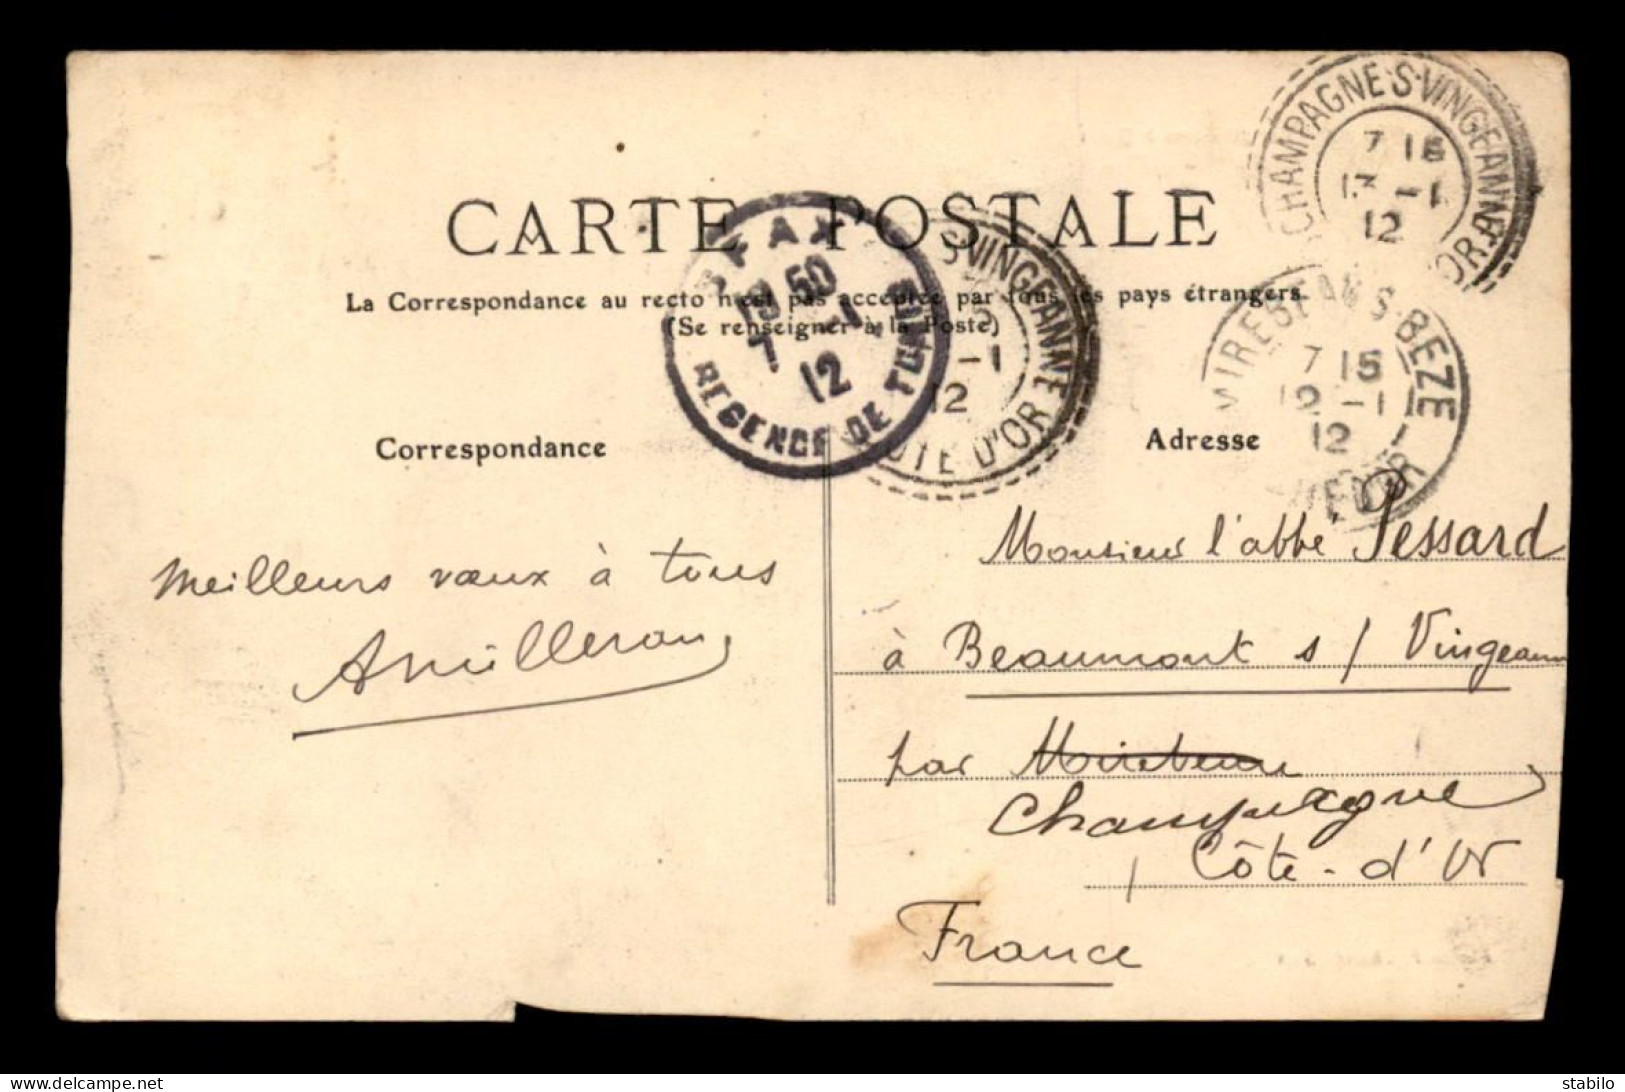 CARTE POSTALE
La Correspondance au recto n'est pas acceptée par tous les pays étrangers.
(Se renseigner à la Poste)
CHAMPAGNE-S-VINGEANNE
7 15
13 -1
12
D'OR
SFAX
19 50
-1
12
REGENCE DE TUNIS
S-VINGEANNE
-1
12
COTE D'OR
MIREBEAU-S-BEZE
7 15
12 -1
12
COTE D'OR
Correspondance
Adresse
Meilleurs vœux à tous
Monsieur l'abbé Pessard
à Beaumont s/ Vingeanne
par Mirebeau
Champagne
Côte-d'Or
France
stabilo